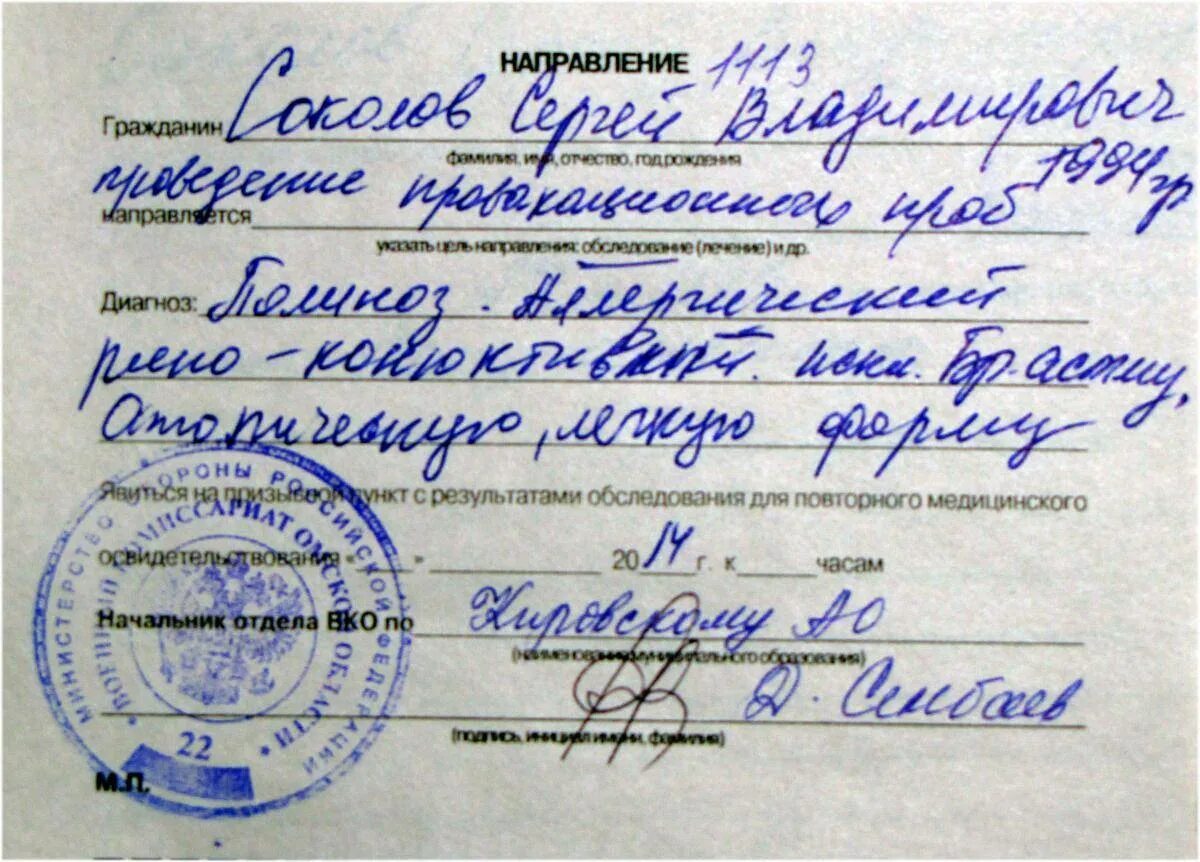 НАПРАВЛЕНИЕ 1113
Гражданин Соколов Сергей Владимирович
фамилия, имя, отчество, год рождения
1994 гр
проведение провакационных проб
направляется
указать цель направления: обследование (лечение) и др.
Диагноз: Полиноз. Аллергический
рино-конюктивит. искл. Бр. астму,
Атопическую, легкую форму
Явиться на призывной пункт с результатами обследования для повторного медицинского
освидетельствования « » 2014 г. к часам
Начальник отдела ВКО по Кировскому АО
(наименование муниципального образования)
Д. Сембаев
(подпись, инициал имени, фамилия)
М.П.
МИНИСТЕРСТВО ОБОРОНЫ РОССИЙСКОЙ ФЕДЕРАЦИИ
ВОЕННЫЙ КОМИССАРИАТ ОМСКОЙ ОБЛАСТИ
22